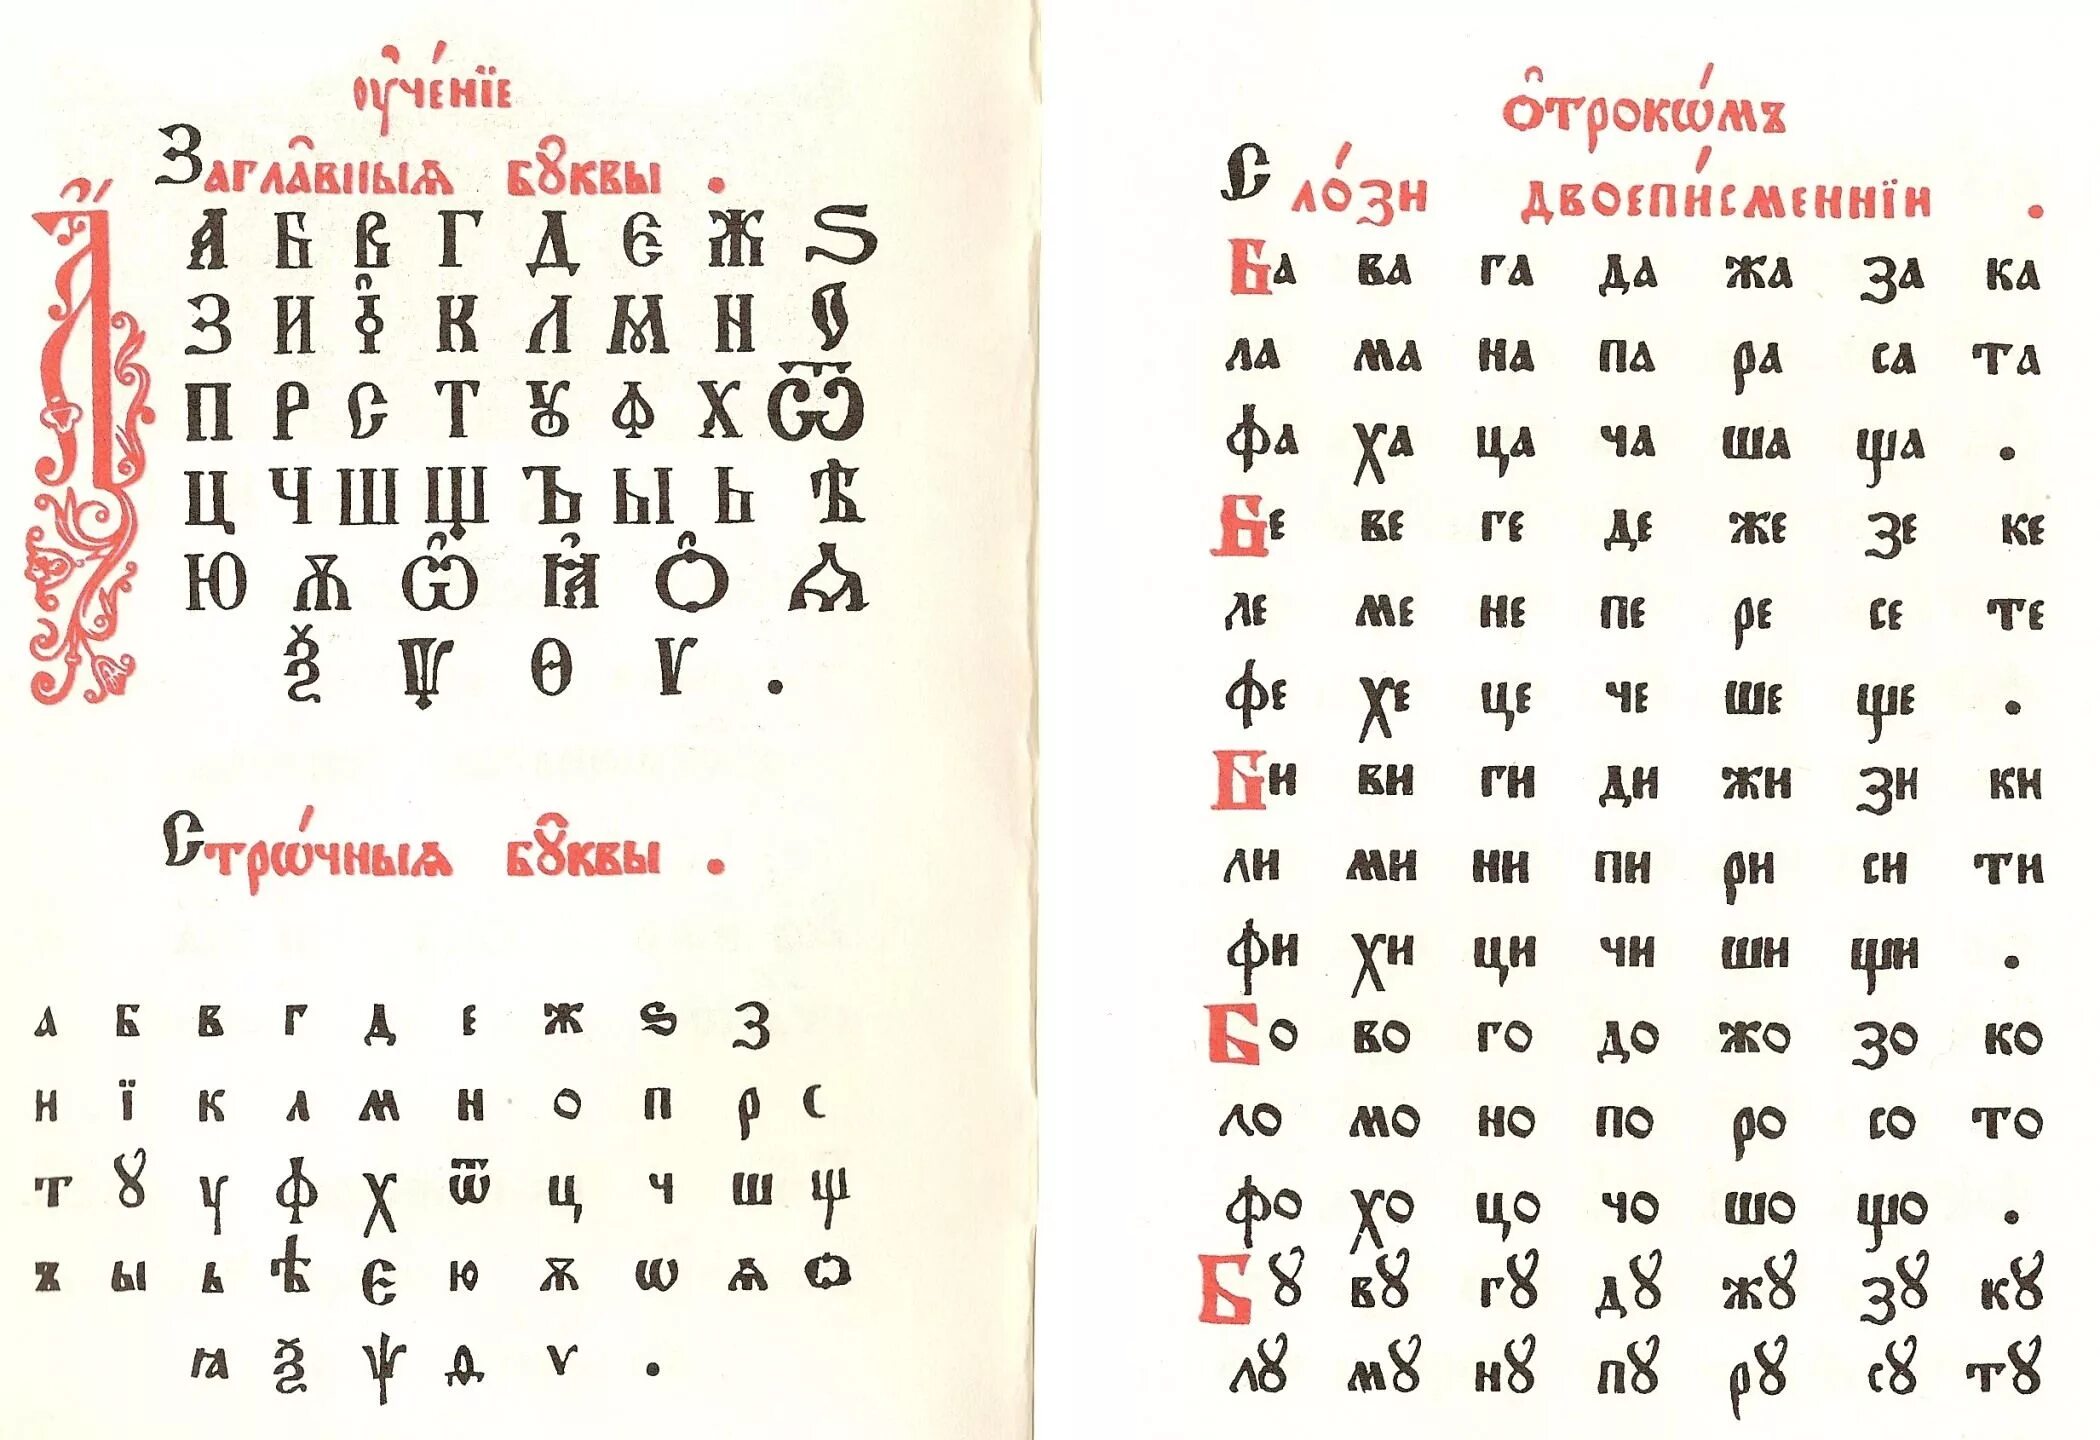 ᲂу҆че́нїе
Загла̑вныѧ бꙋ̑квы .
А Б В Г Д Є Ж Ѕ
З И І҆ К Л М Н О
П Р С Т Ꙋ Ф Х Ѿ
Ц Ч Ш Щ Ъ Ы Ь Ѣ
Ю Ѫ Ѽ Ꙗ҆ Ѻ҆ Ѧ
Ѯ Ѱ Ѳ Ѵ .
Стрѡ́чныѧ бꙋ̑квы .
а б в г д е ж ѕ з
и ї к л м н о п р с
т ꙋ у ф х ѿ ц ч ш щ
ъ ы ь ѣ є ю ѫ ѡ ѧ ѻ
ꙗ ѯ ѱ ѳ ѵ .
Ѻ҆трокѡ́мъ
Сло́зи двоепи́сменнїи .
Ба ва га да жа за ка
ла ма на па ра са та
фа ха ца ча ша ща .
Бе ве ге де же зе ке
ле ме не пе ре се те
фе хе це че ше ще .
Би ви ги ди жи зи ки
ли ми ни пи ри си ти
фи хи ци чи ши щи .
Бо во го до жо зо ко
ло мо но по ро со то
фо хо цо чо шо що .
Бꙋ вꙋ гꙋ дꙋ жꙋ зꙋ кꙋ
лꙋ мꙋ нꙋ пꙋ рꙋ сꙋ тꙋ